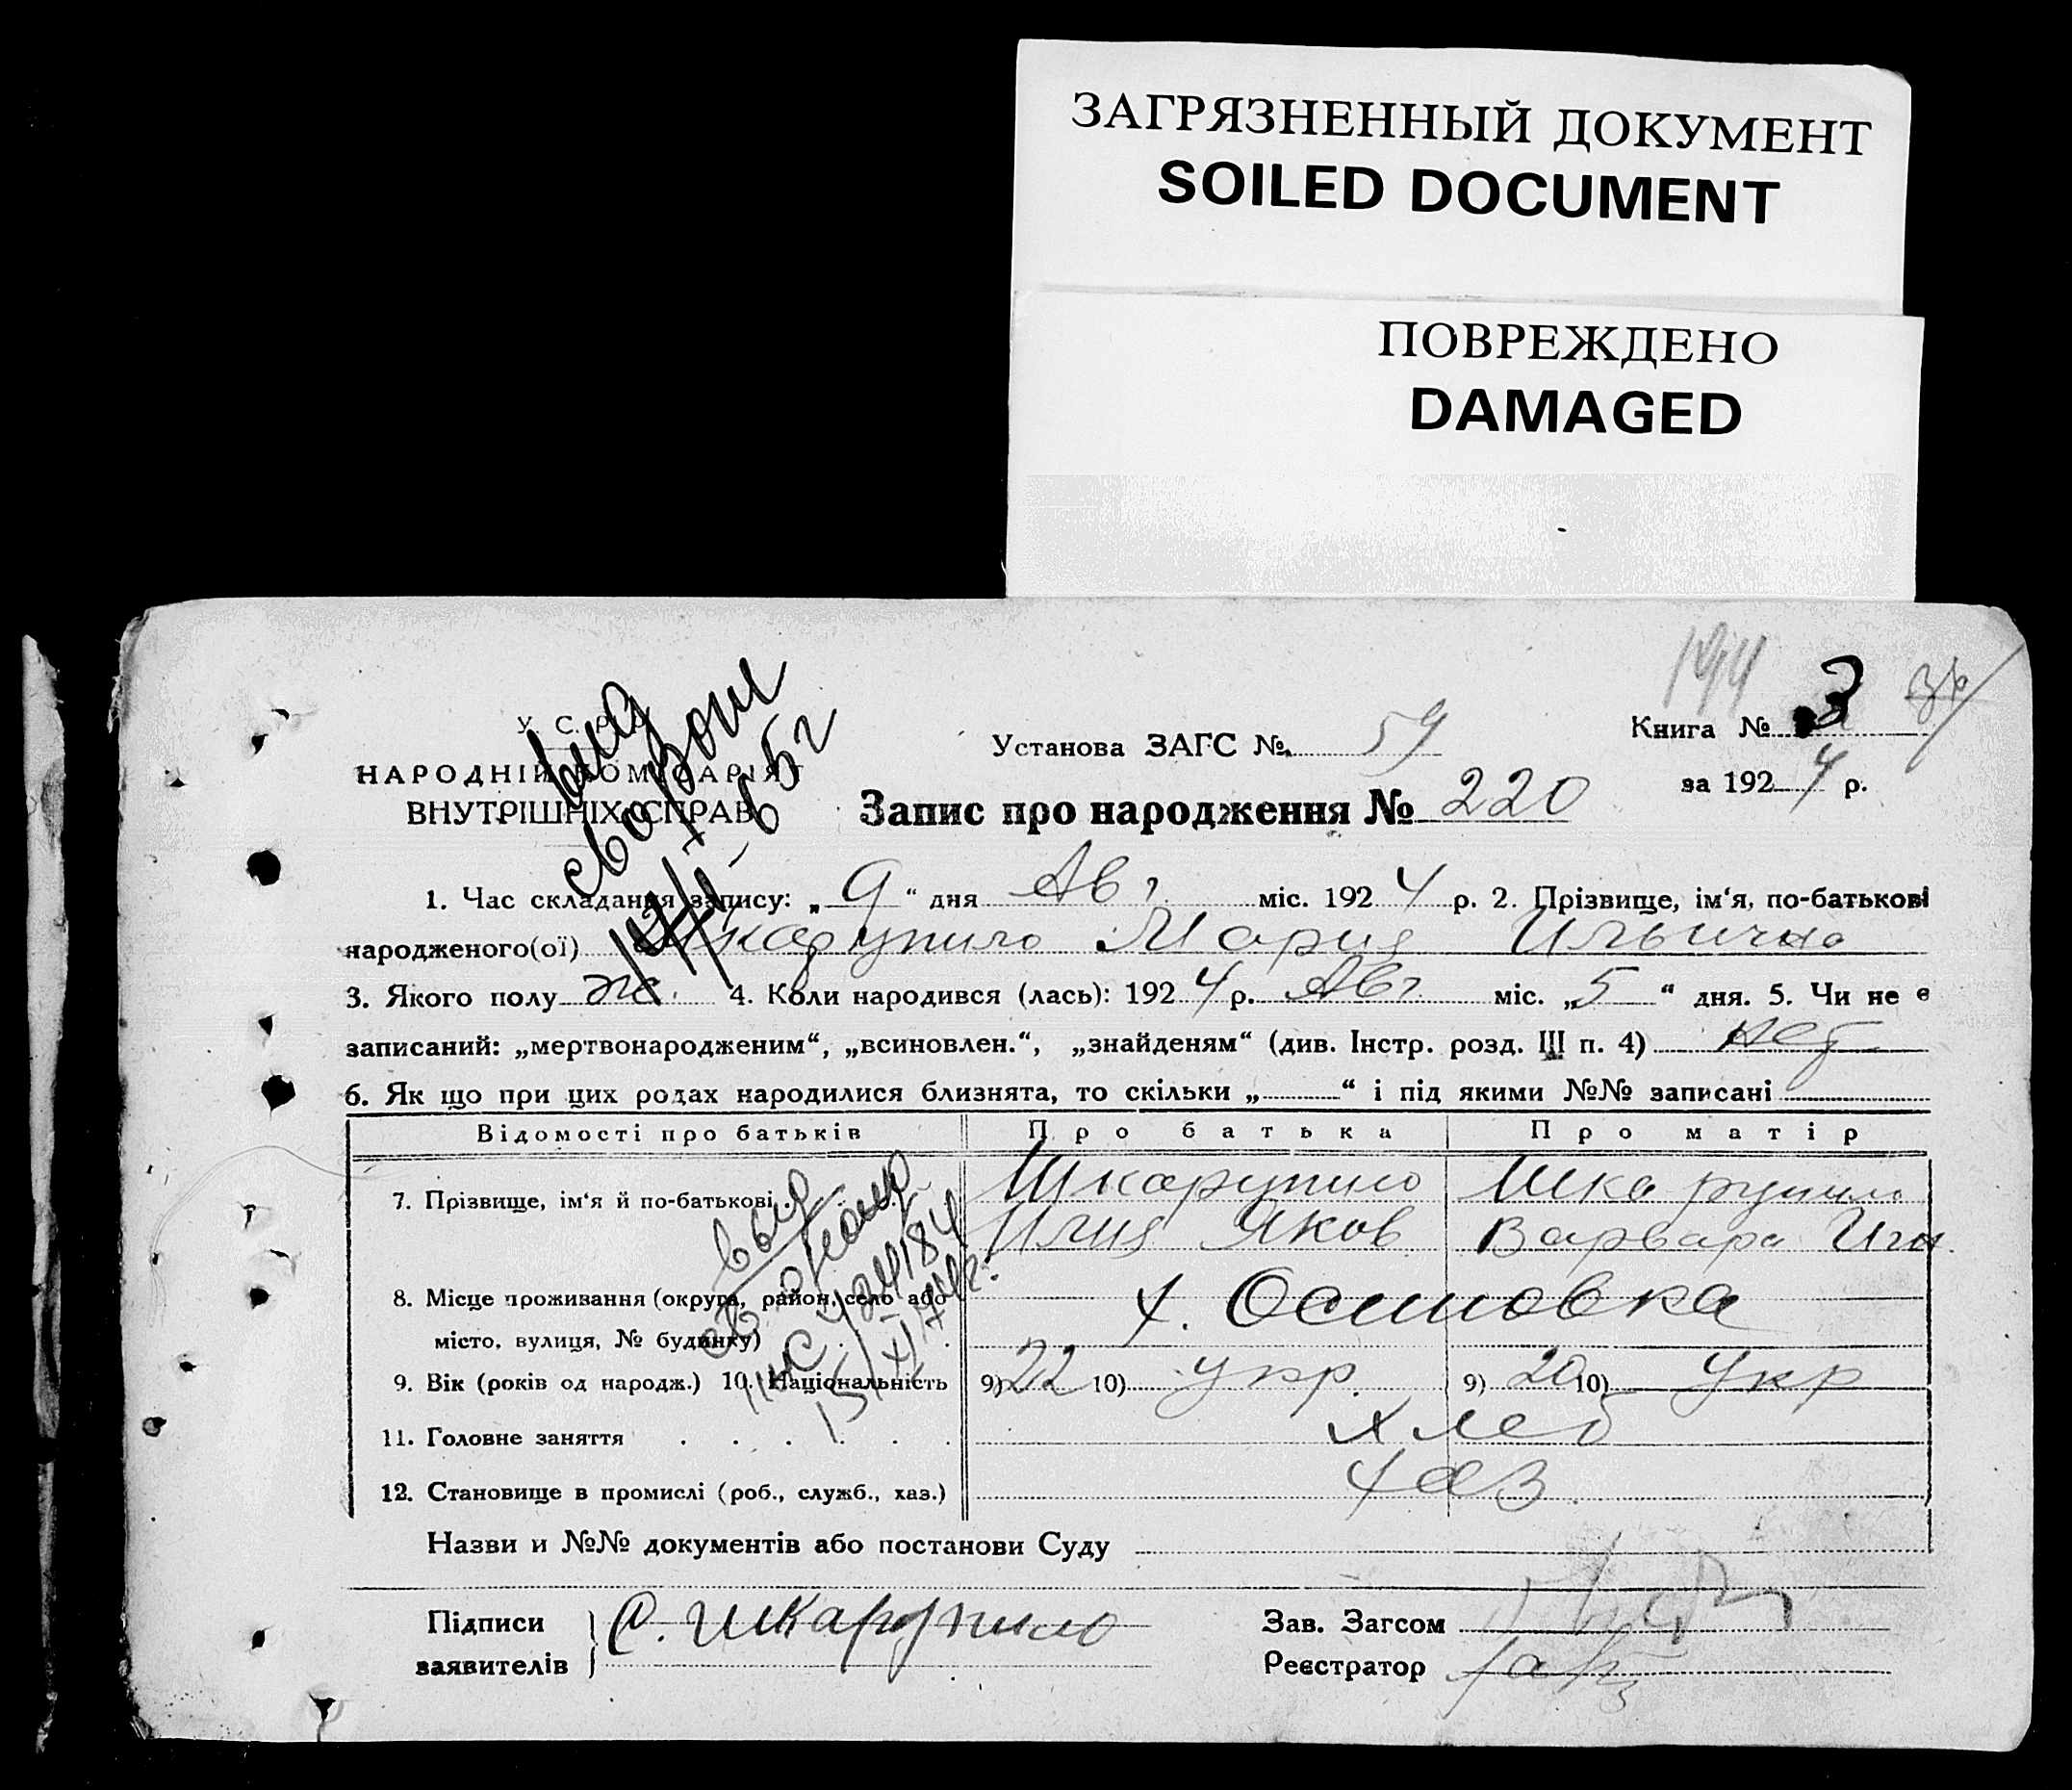 ЗАГРЯЗНЕННЫЙ ДОКУМЕНТ
SOILED DOCUMENT
ПОВРЕЖДЕНО
DAMAGED
У. С. Р. Р.
НАРОДНІЙ КОМІСАРІЯТ
ВНУТРІШНІХ СПРАВ
Установа ЗАГС № 59
Книга № 3
за 1924 р.
Запис про народження № 220
1. Час складання запису: „9“ дня Авг міс. 1924 р. 2. Прізвище, ім‘я, по-батькові
народженого(ої) Шкарупило Мария Ильична
3. Якого полу ж. 4. Коли народився (лась): 1924 р. Авг. міс. „5“ дня. 5. Чи не є
записаний: „мертвонародженим“, „всиновлен.“, „знайденям“ (див. Інстр. розд. III п. 4) нет
6. Як що при цих родах народилися близнята, то скільки „ “ і під якими №№ записані
Відомості про батьків Про батька Про матір
7. Прізвище, ім‘я й по-батькові Шкарупило Шкарупило
Илия Яков Варвара Игн.
8. Місце проживання (округа, район, село або
місто, вулиця, № будинку) х. Осиповка
9. Вік (років од народж.) 10. Національність 9) 22 10) укр. 9) 20 10) Укр
11. Головне заняття хлеб
12. Становище в промислі (роб., служб., хаз.) хаз
Назви и №№ документів або постанови Суду
Підписи
заявителів
С. Шкарупило
Зав. Загсом
Реєстратор